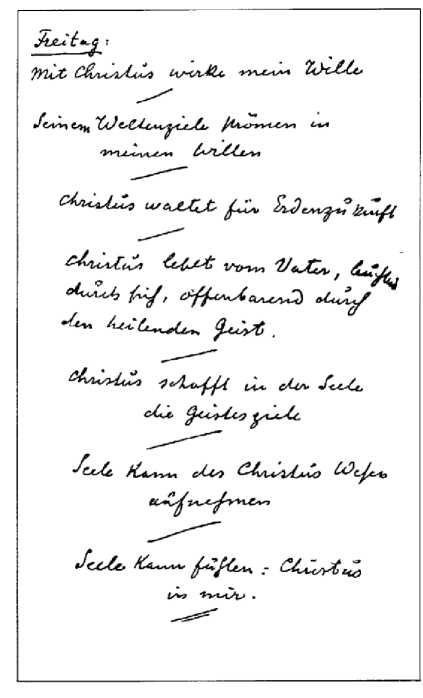 Freitag:
Mit Christus wirke mein Wille
Seinem Weltenziele strömen in
meinen Willen
Christus waltet für Erdenzukunft
Christus lebet vom Vater,
durch sich, offenbarend durch
den heilenden Geist.
Christus schafft in der Seele
die Geistesziele
Seele kann des Christus Wesen
aufnehmen
Seele kann fühlen: Christus
in mir.